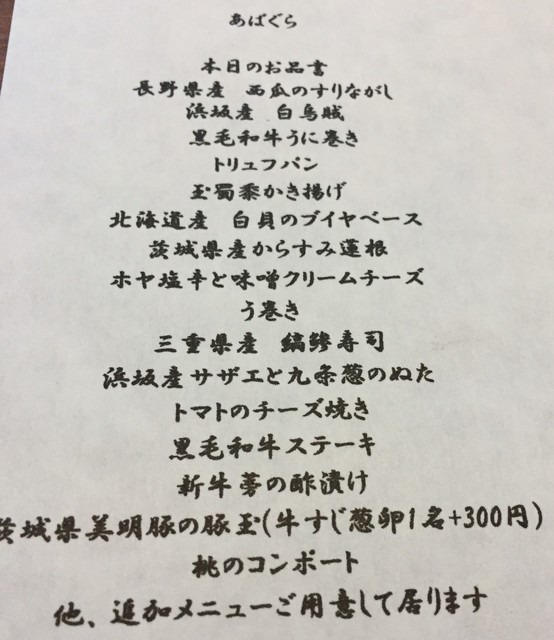 あばぐら
本日のお品書
長野県産 西瓜のすりながし
浜坂産 白烏賊
黒毛和牛うに巻き
トリュフパン
玉蜀黍かき揚げ
北海道産 白貝のブイヤベース
茨城県産からすみ蓮根
ホヤ塩辛と味噌クリームチーズ
う巻き
三重県産 縞鯵寿司
浜坂産サザエと九条葱のぬた
トマトのチーズ焼き
黒毛和牛ステーキ
新牛蒡の酢漬け
茨城県美明豚の豚玉(牛すじ葱卵1名+300円)
桃のコンポート
他、追加メニューご用意して居ります